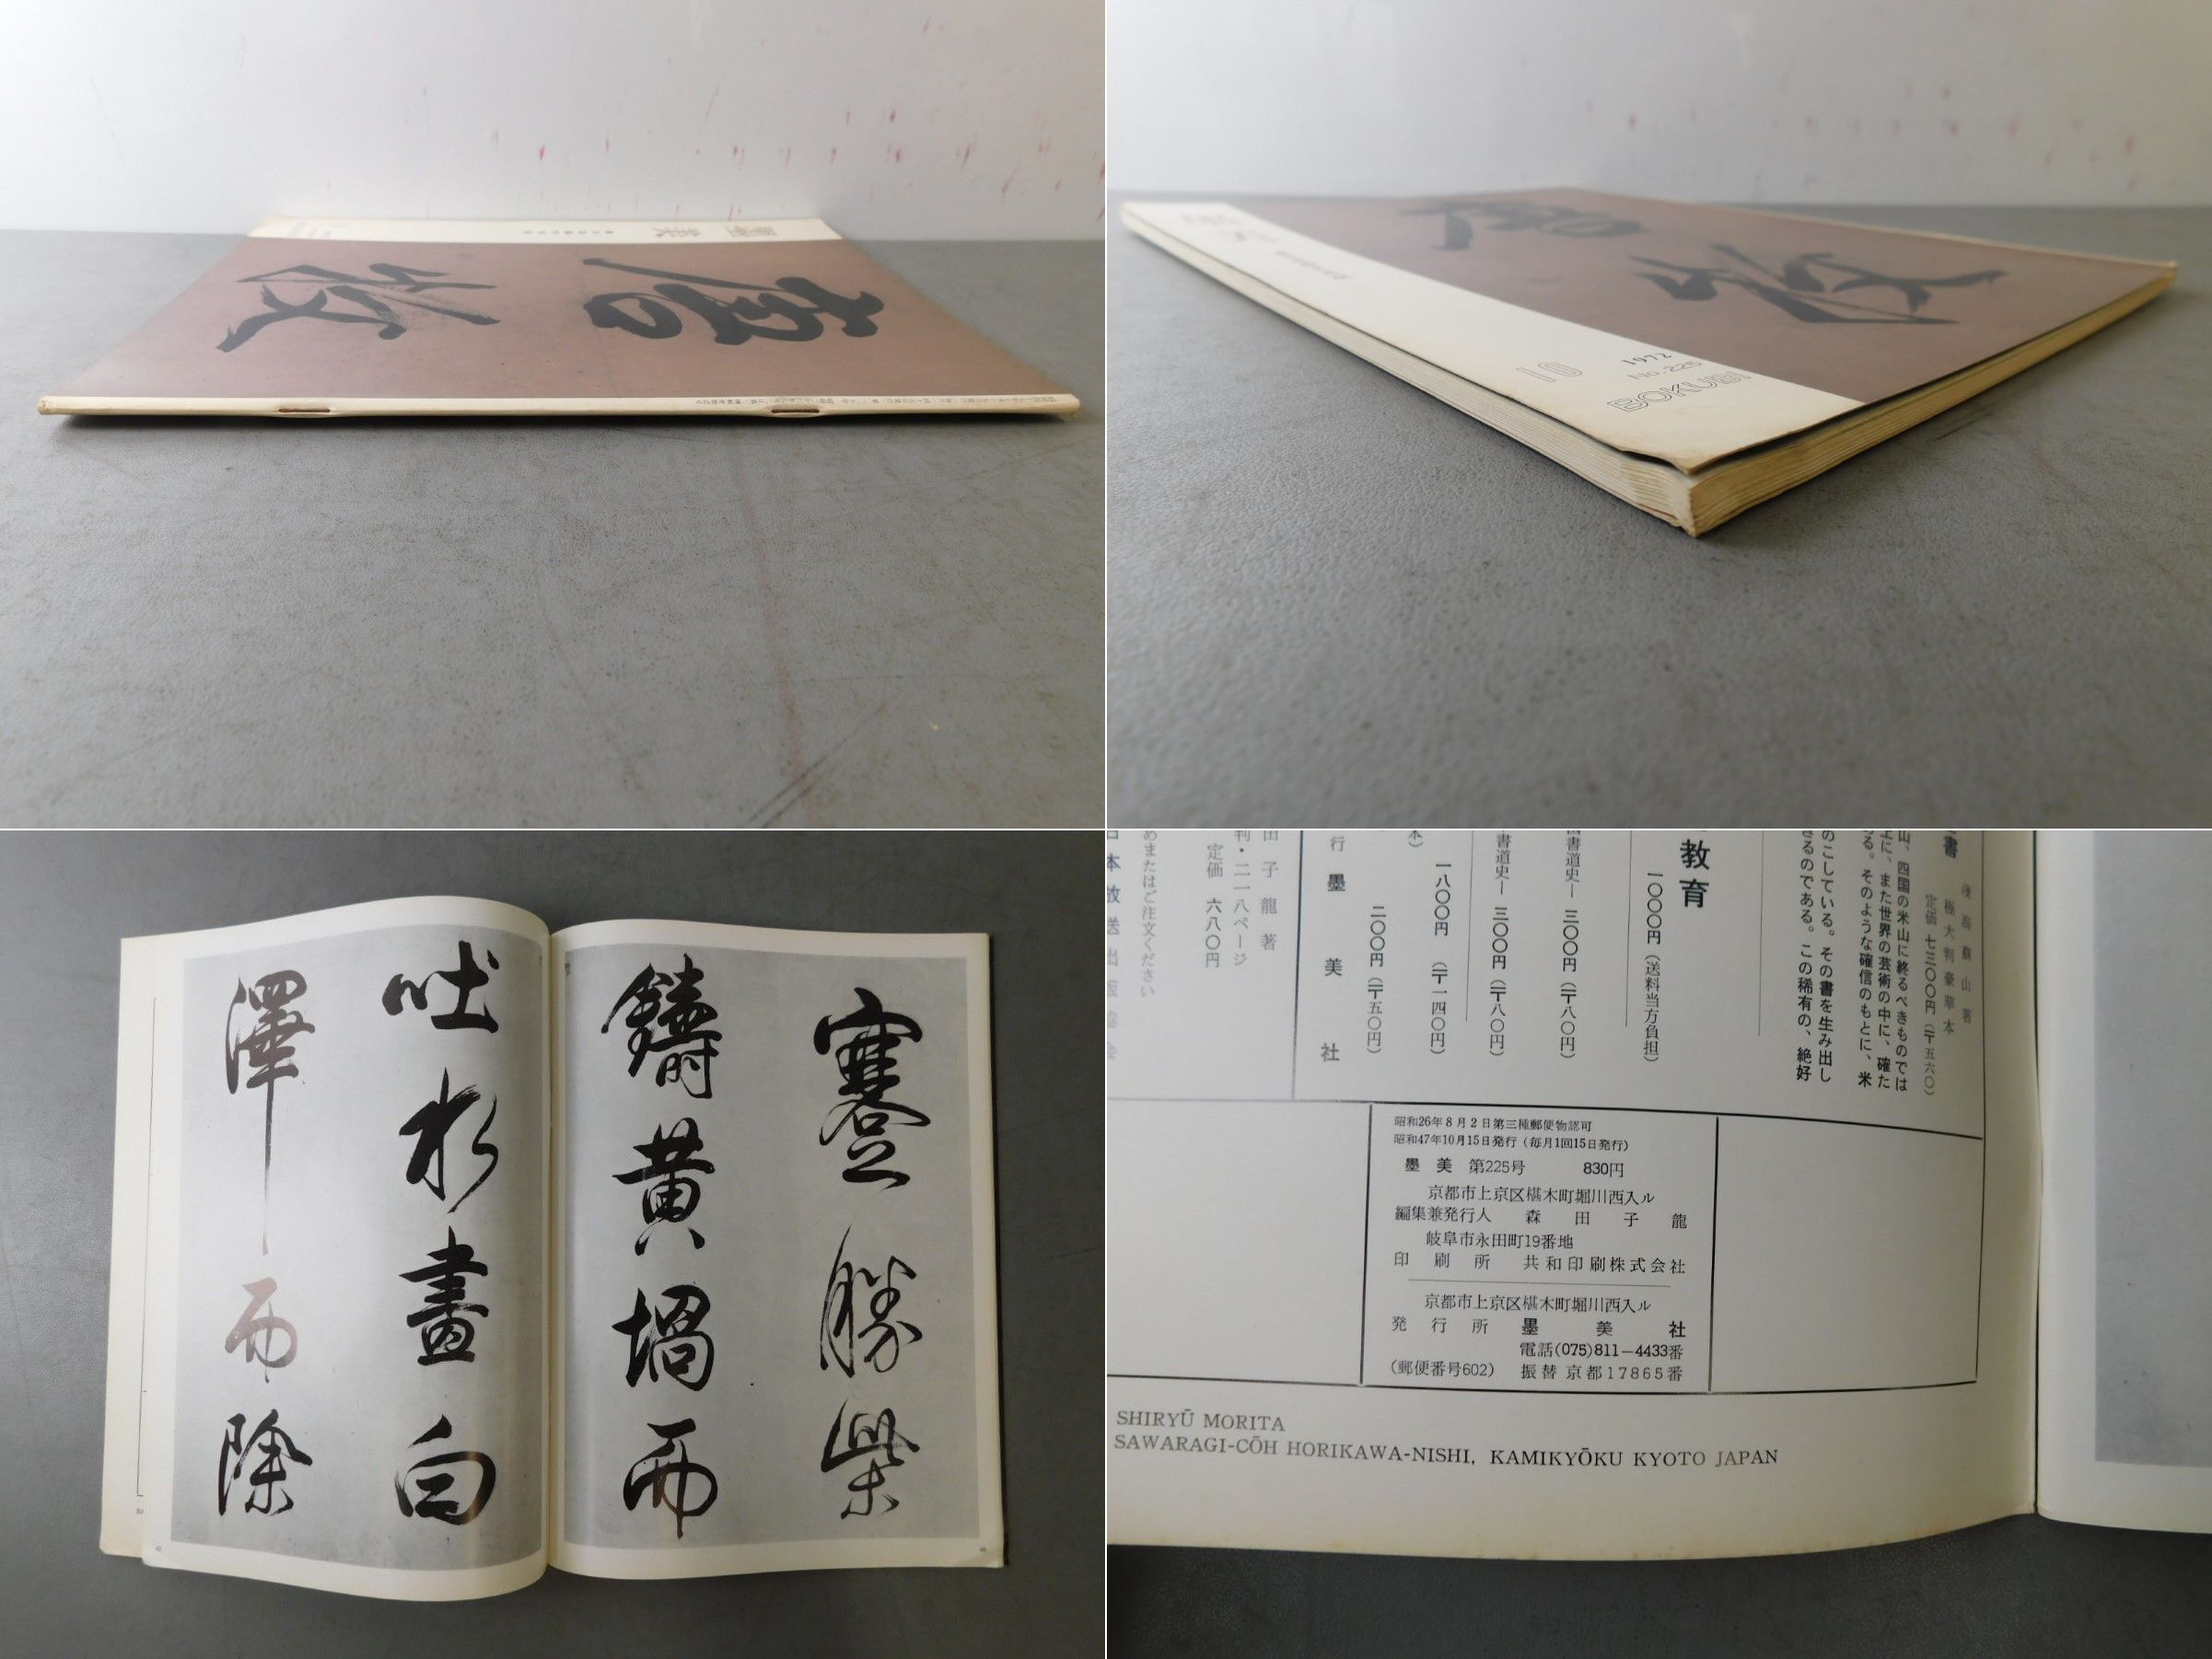 墨美
10
1972
No. 225
BOKUBI
蹇勝槃
鑄黄堝而
吐水畫白
澤而除
後高蘇山著
極大判豪華本
定価 七三〇〇円(〒五六〇)
山、四国の米山に終るべきものでは
上に、また世界の芸術の中に、確た
る。そのような確信のもとに、米
のこしている。その書を生み出し
さるのである。この稀有の、絶好
教育
一〇〇〇円(送料当方負担)
書道史― 三〇〇円(〒八〇円)
書道史― 三〇〇円(〒八〇円)
一八〇〇円(〒一四〇円)
二〇〇円(〒五〇円)
行 墨美社
田子龍著
判・二一八ページ
定価 六八〇円
めまたはご注文ください
日本放送出版協会
昭和26年8月2日第三種郵便物認可
昭和47年10月15日発行(毎月1回15日発行)
墨美 第225号 830円
京都市上京区椹木町堀川西入ル
編集兼発行人 森田子龍
岐阜市永田町19番地
印刷所 共和印刷株式会社
京都市上京区椹木町堀川西入ル
発行所 墨美社
電話(075)811-4433番
(郵便番号602) 振替 京都17865番
SHIRYŪ MORITA
SAWARAGI-CŌH HORIKAWA-NISHI, KAMIKYŌKU KYOTO JAPAN